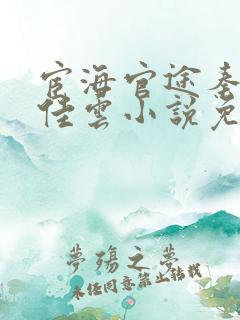 宦海官途秦
佳雲小說免
夢殤之夢
未經同意禁止轉載